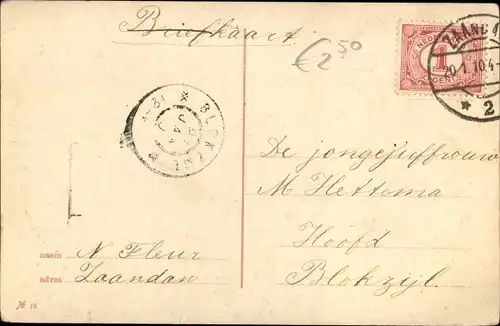 Briefkaart
€ 2.50
NEDERLAND
1
CENT
ZAAND
20.1.10.4-
* 2
BLOKZIJL
De jongejuffrouw
M Hettema
Hoofd
Blokzijl.
naam N Fleur
adres Zaandan
№ 14